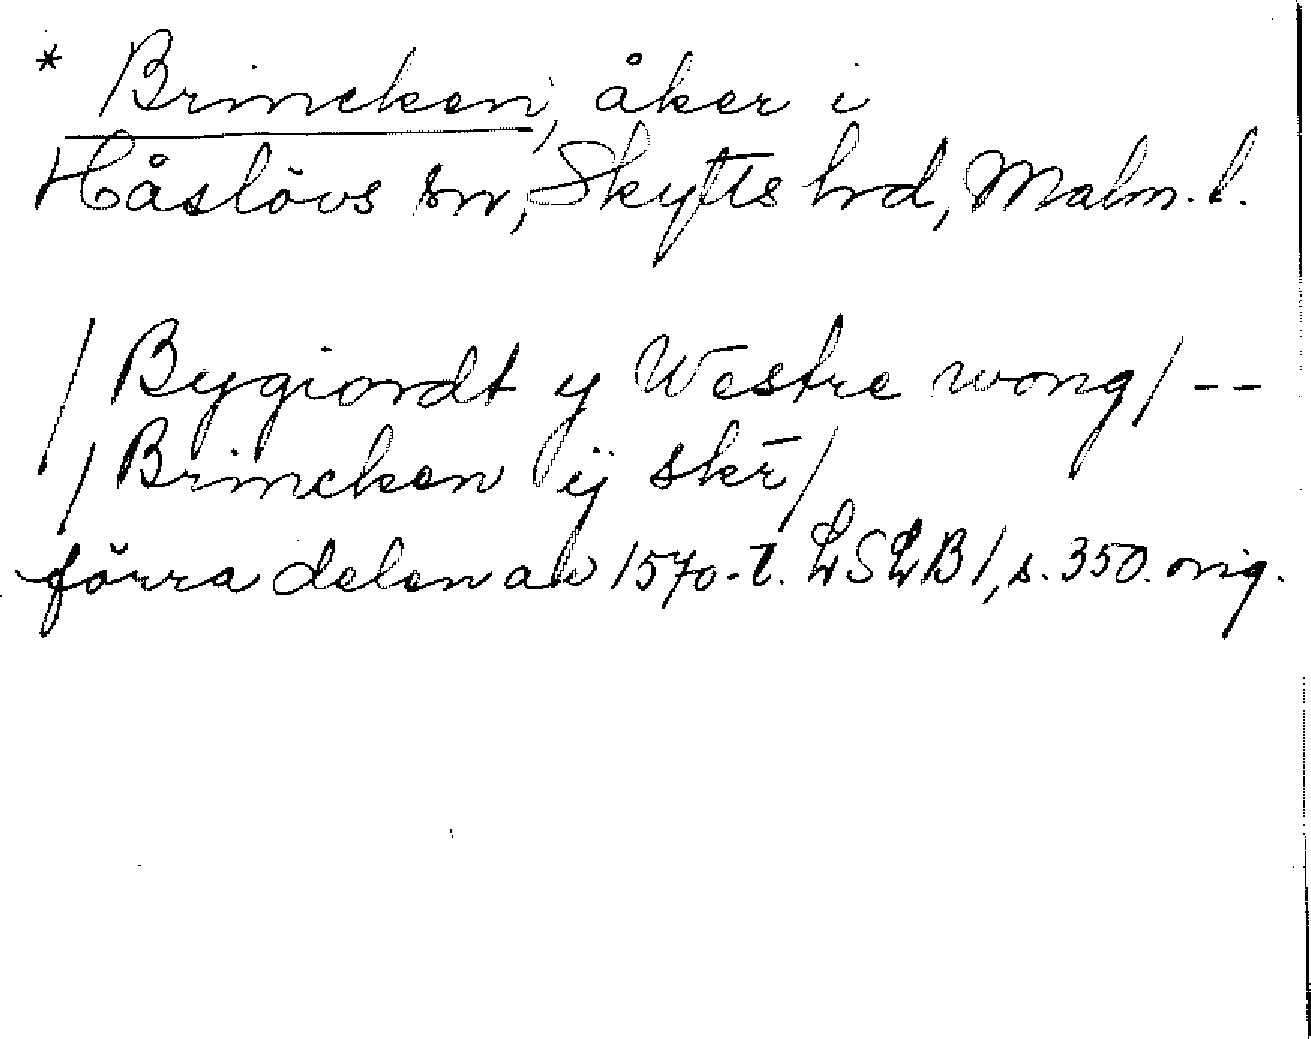 * Brincken, åker i
Håslövs sn, Skytts hrd, Malm. l.
/ Bygiordt y Westre wong/ --
/ Brincken ij skr̄ /
förra delen av 1570-t. LSLB 1, s. 350. orig.